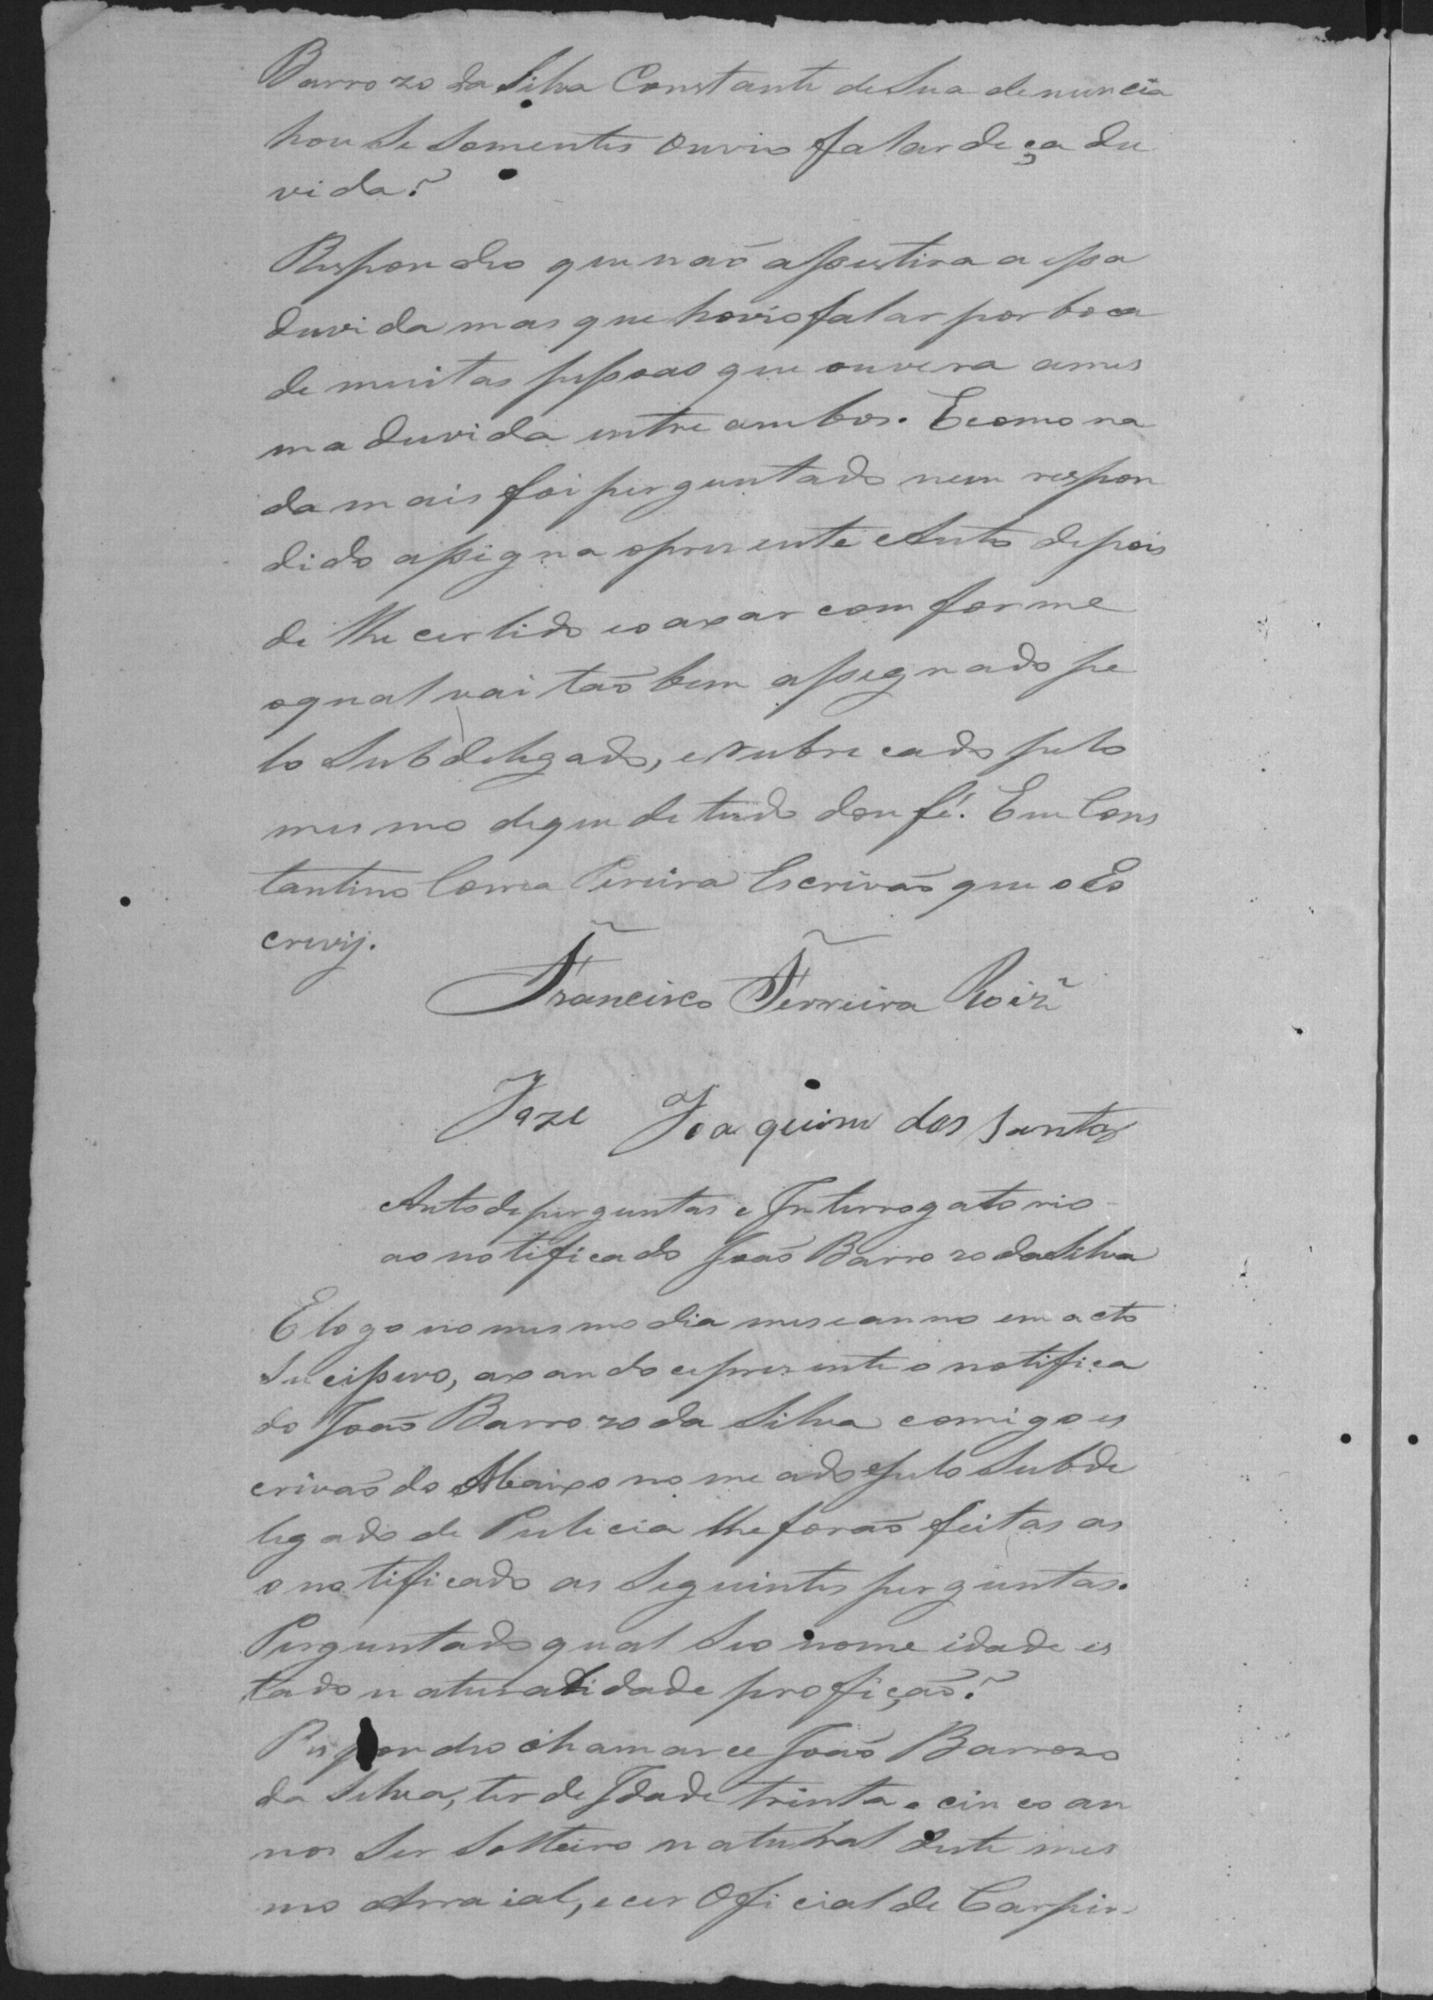 Barrozo da Silva Constante de Sua denuncia
hou Se Somentes Ouvio falar de ça du
vida?
Respondeo que naõ assestira a essa
duvida mas que hovio falar por boca
de muitas pessoas que ouvera a mes
ma duvida entre ambos. E como na
da mais foi perguntado nem respon
dido assigna o prezente Auto depois
de lhe cer lido e o axar comforme
o qual vai taõ bem assegnado pe
lo Subdelegado, e rubrecado pelo
mesmo de que de tudo dou fé. Eu Cons
tantino Correa Pereira Escrivaõ que o Es
crevij.
Francisco Ferreira Roiz
Joze Joaquim dos Santos
Auto de perguntas e Interrogatorio
ao notificado Joaõ Barrozo da Silva
E logo no mesmo dia mes e anno em acto
Sucissevo, axando ce prezente o notifica
do Joaõ Barrozo da Silva comigo es
crivaõ do Abaixo nomeado e pelo Subde
legado de Pulicia lhe foraõ feitas as
o notificado as Seguintes perguntas.
Perguntado qual Seo nome idade es
tado naturalidade profiçaõ?
Respondeo chamarce Joaõ Barrozo
da Silva, ter de Idade trinta e cinco an
nos Ser Solteiro natural deste mes
mo Arraial, e cer Oficial de Carpin